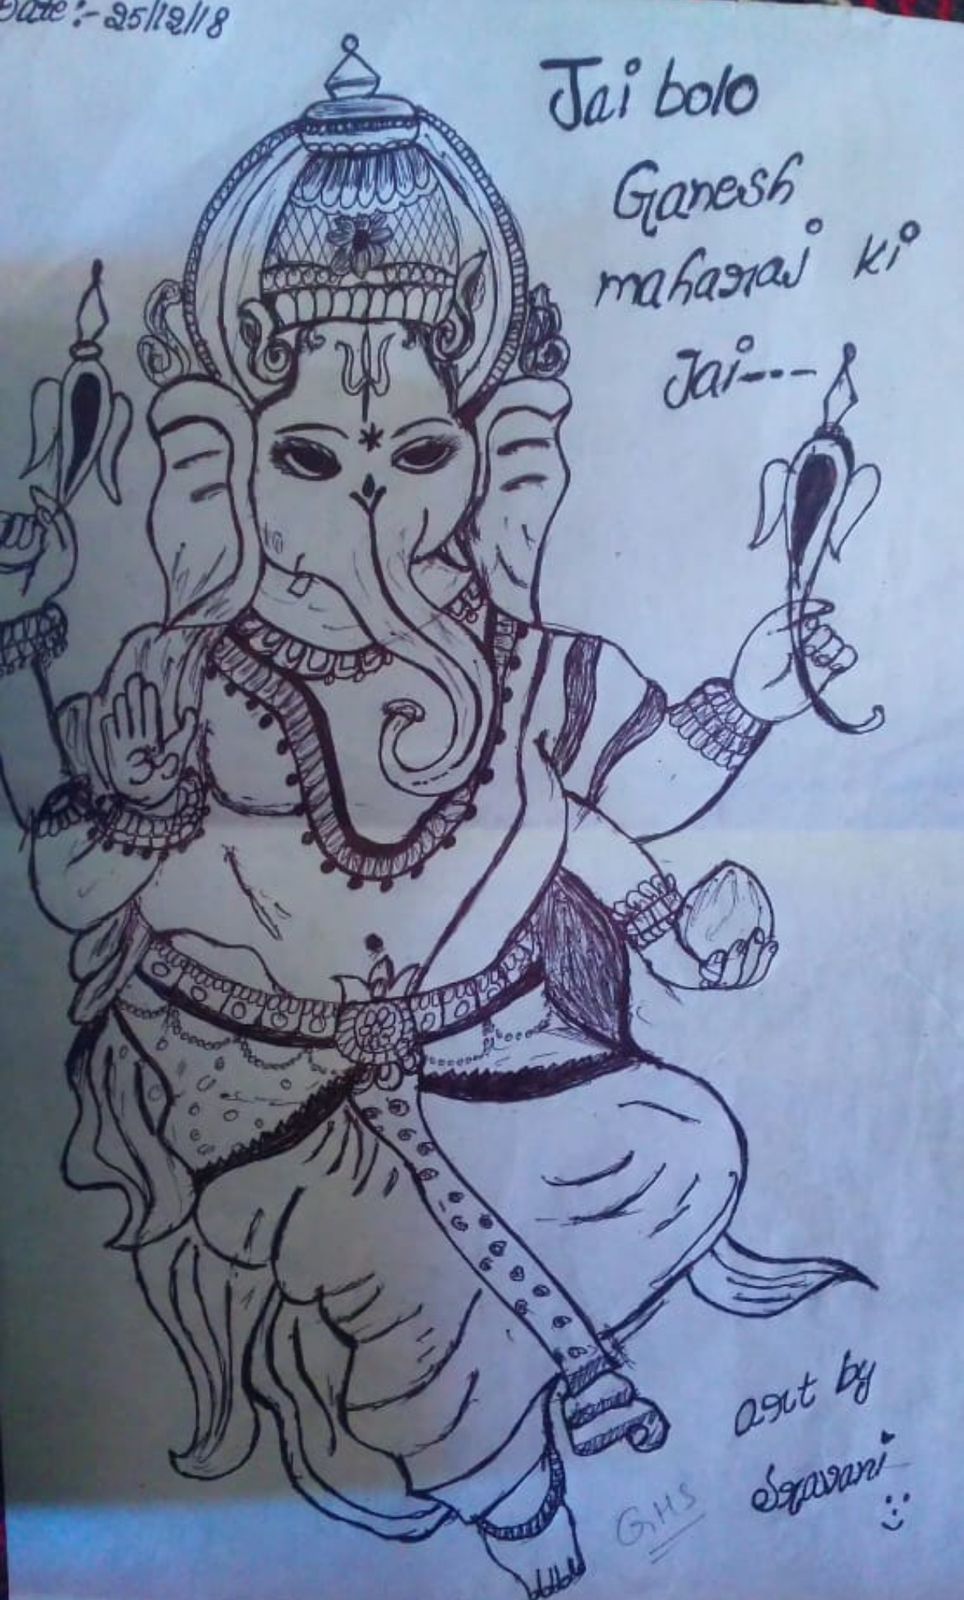 Date:- 25/12/18
Jai bolo
Ganesh
maharaj ki
Jai---
art by
Sravani
GHS